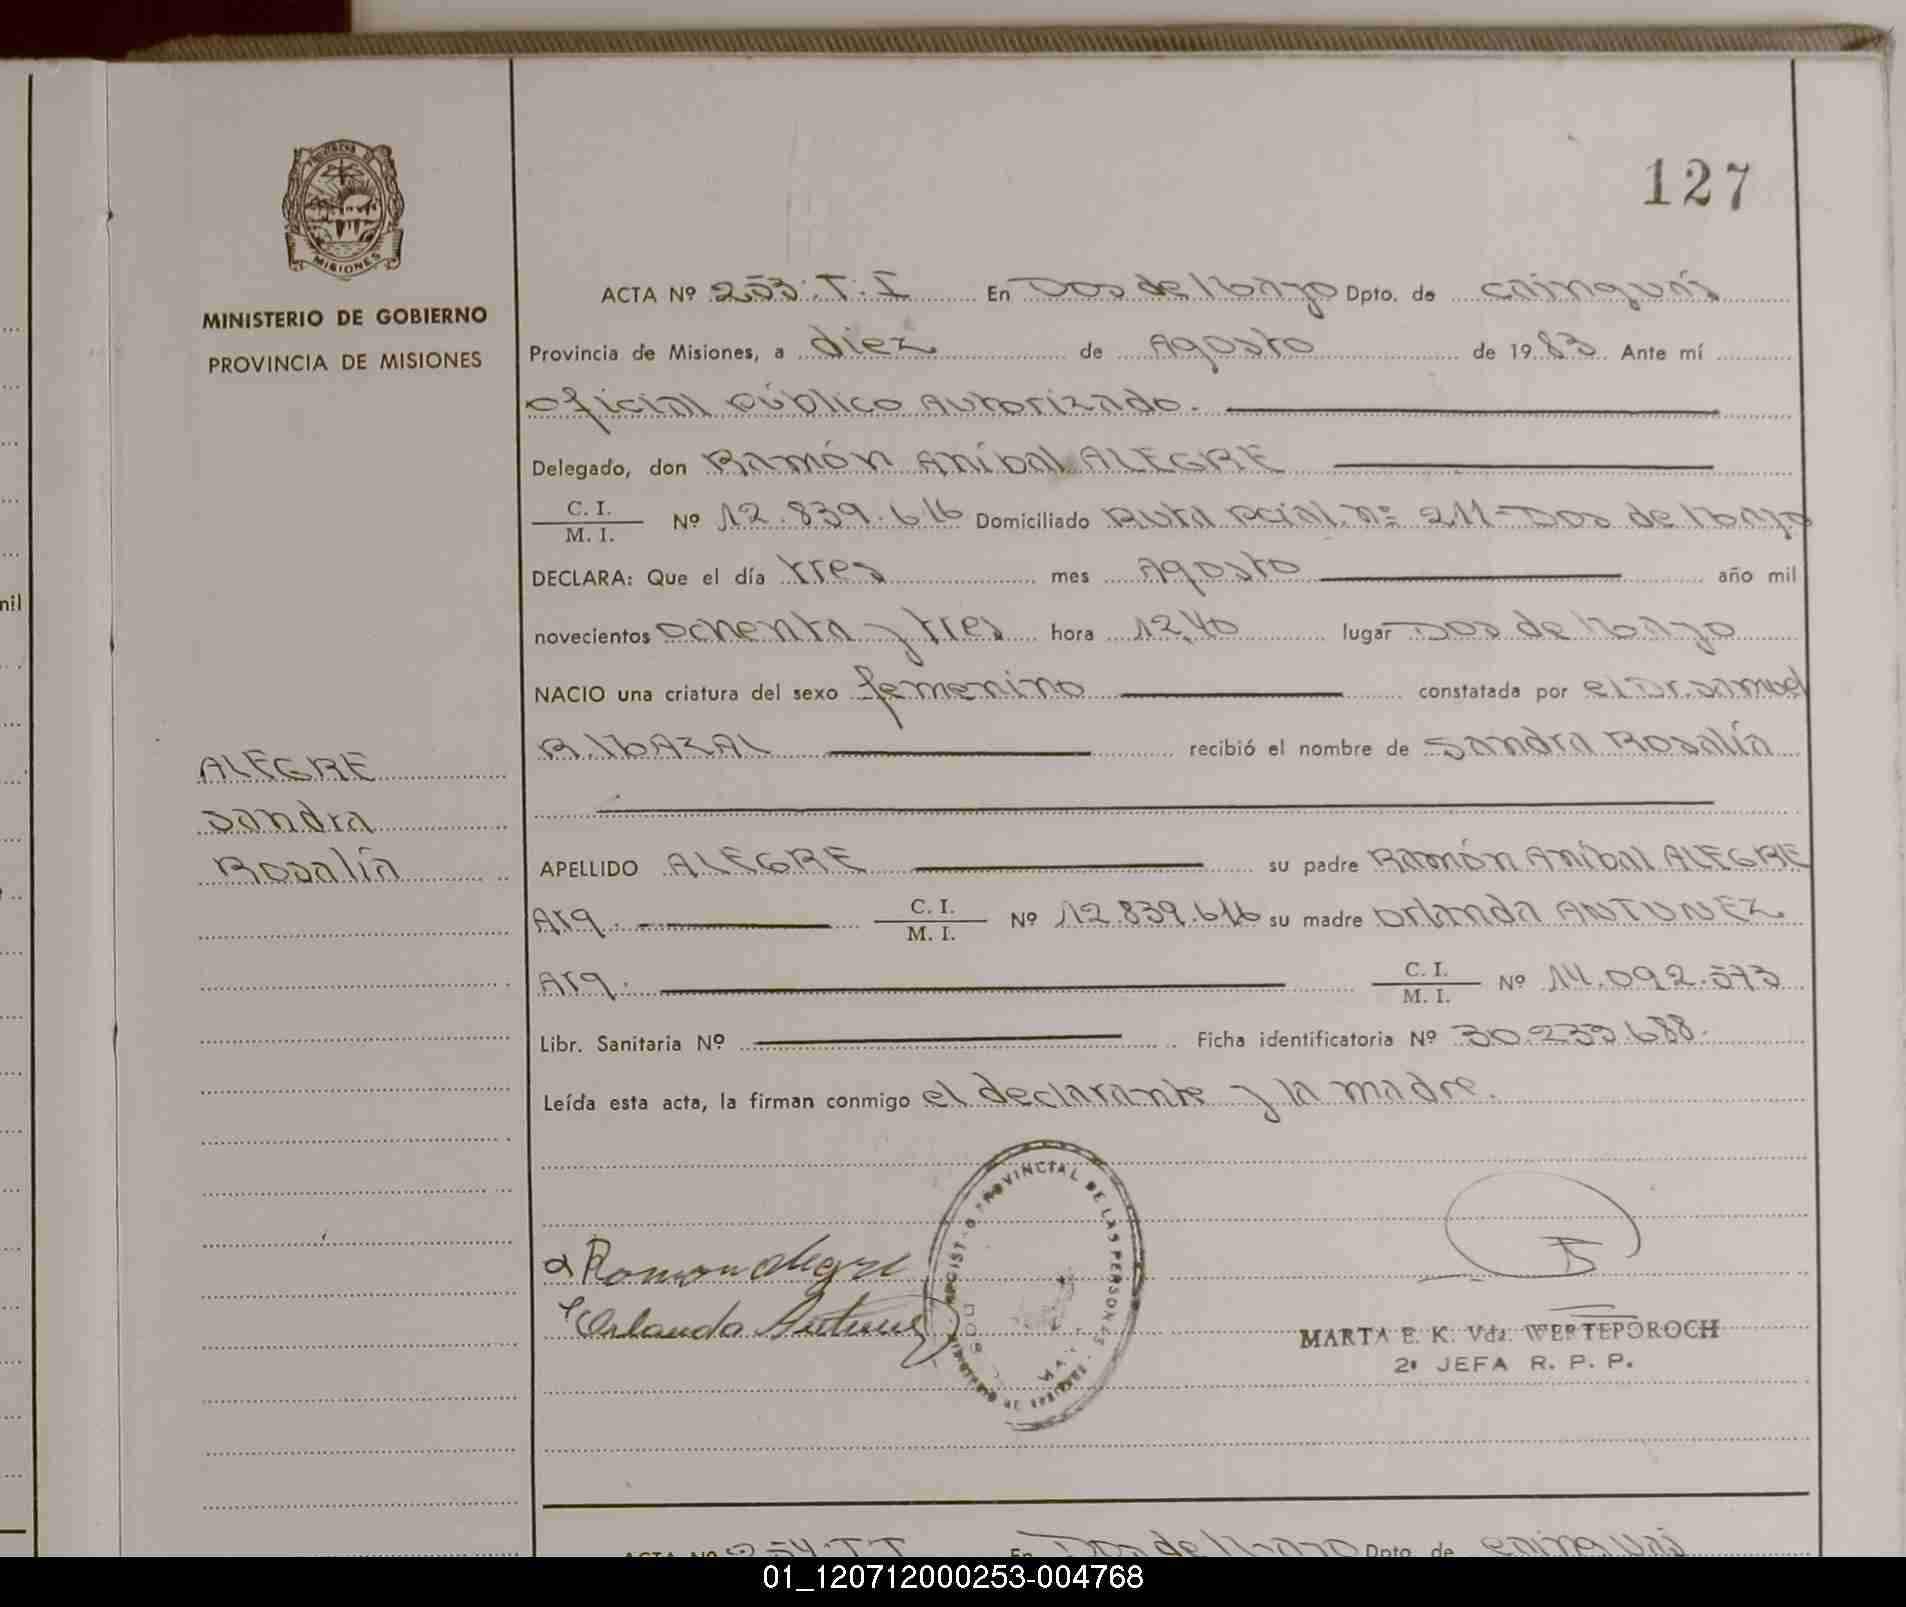 127
MINISTERIO DE GOBIERNO
PROVINCIA DE MISIONES
ALEGRE
Sandra
Rosalía
ACTA Nº 253.T.I En Dos de Mayo Dpto. de Cainguás
Provincia de Misiones, a diez de Agosto de 1983. Ante mí
Oficial Público Autorizado.
Delegado, don Ramón Aníbal ALEGRE
C. I.
M. I. Nº 12.839.616 Domiciliado Ruta Pcial. nº 211-Dos de Mayo
DECLARA: Que el día tres mes Agosto año mil
novecientos ochenta y tres hora 12,40 lugar Dos de Mayo
NACIO una criatura del sexo femenino constatada por el Dr. Samuel
R. recibió el nombre de Sandra Rosalía
APELLIDO ALEGRE su padre Ramón Aníbal ALEGRE
Arg. C. I.
M. I. Nº 12.839.616 su madre Orlanda ANTUNEZ
Arg. C. I.
M. I. Nº 14.092.573
Libr. Sanitaria Nº Ficha identificatoria Nº 30.239.688.
Leída esta acta, la firman conmigo el declarante y la madre.
PROVINCIAL DE LAS PERSONAS
Ramon Alegre
Orlanda Antunez
MARTA E. K. Vda. WERTEPOROCH
2ª JEFA R. P. P.
ACTA Nº 254.T.I En Dos de Mayo Dpto. de Cainguás
nil
01_120712000253-004768